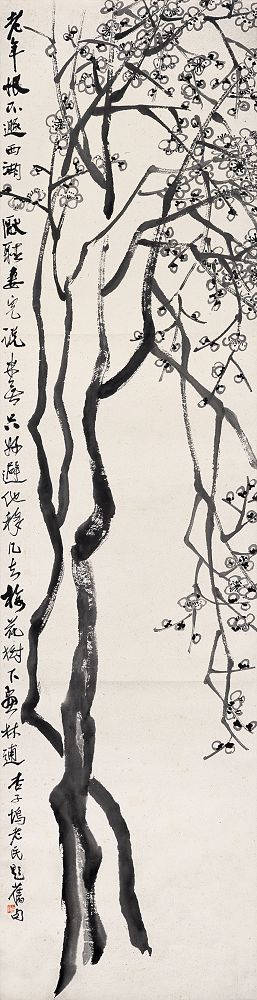 老年恨不游西湖厭聽妻兒說米無只好避他移几去梅花樹下畫林逋杏子塢老民題舊句